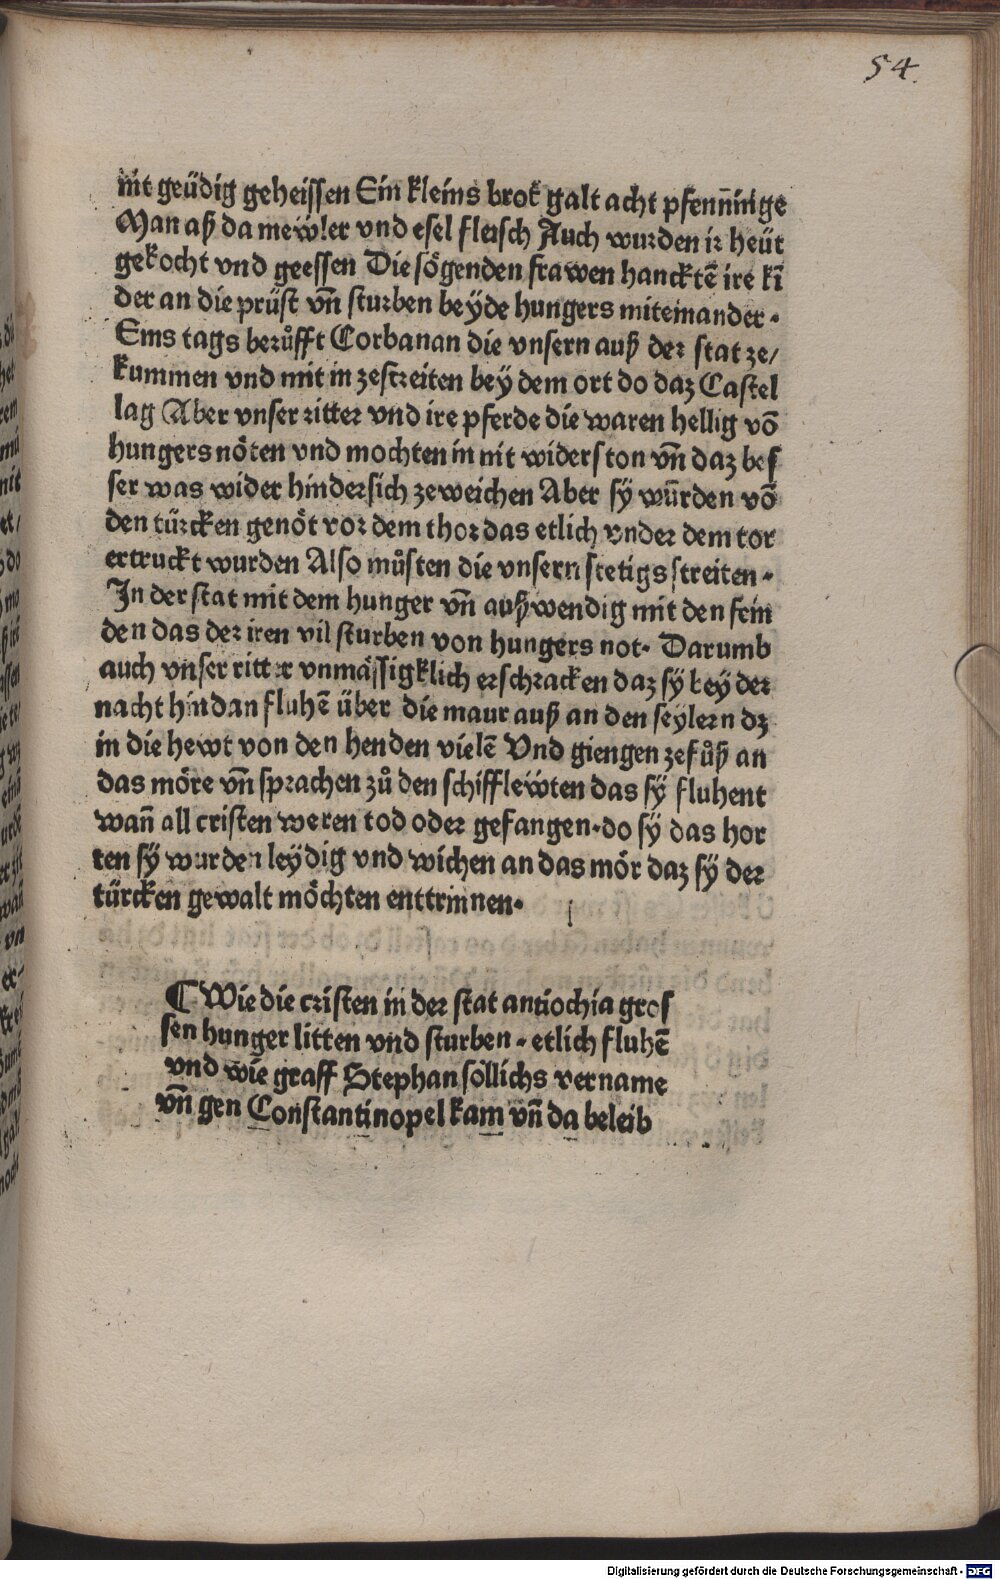 54.
nit geüdig geheissen Ein kleins brot galt acht pfenn̄inge
Man aß da mewler vnd esel fleisch Auch wurden ir heüt
gekocht vnd geessen Die sögenden frawen hancktē ire kī
der an die prüst vn̄ sturben beyde hungers miteinander.
Eins tags berůfft Corbanan die vnsern auß der stat ze/
kummen vnd mit in zestreiten bey dem ort do daz Castel
lag Aber vnser ritter vnd ire pferde die waren hellig vō
hungers nöten vnd mochten in nit widerston vn̄ daz bes
ser was wider hindersich zeweichen Aber sy wūrden vō
den türcken genöt vor dem thor das etlich vnder dem tor
ertruckt wurden Also můsten die vnsern stetigs streiten.
In der stat mit dem hunger vn̄ außwendig mit den fein
den das der iren vil sturben von hungers not. Darumb
auch vnser ritter vnmässigklich erschracken daz sy bey der
nacht hindan fluhē über die maur auß an den seylern dz
in die hewt von den henden vielē Vnd giengen zefůß an
das möre vn̄ sprachen zů den schifflewten das sy fluhent
wan̄ all cristen weren tod oder gefangen.do sy das hor
ten sy wurden leydig vnd wichen an das mör daz sy der
türcken gewalt möchten enttrinnen.
⸿ Wie die cristen in der stat antiochia gros
sen hunger litten vnd sturben. etlich fluhē
vnd wie graff Stephan söllichs vername
vn̄ gen Constantinopel kam vn̄ da beleib
Digitalisierung gefördert durch die Deutsche Forschungsgemeinschaft - DFG